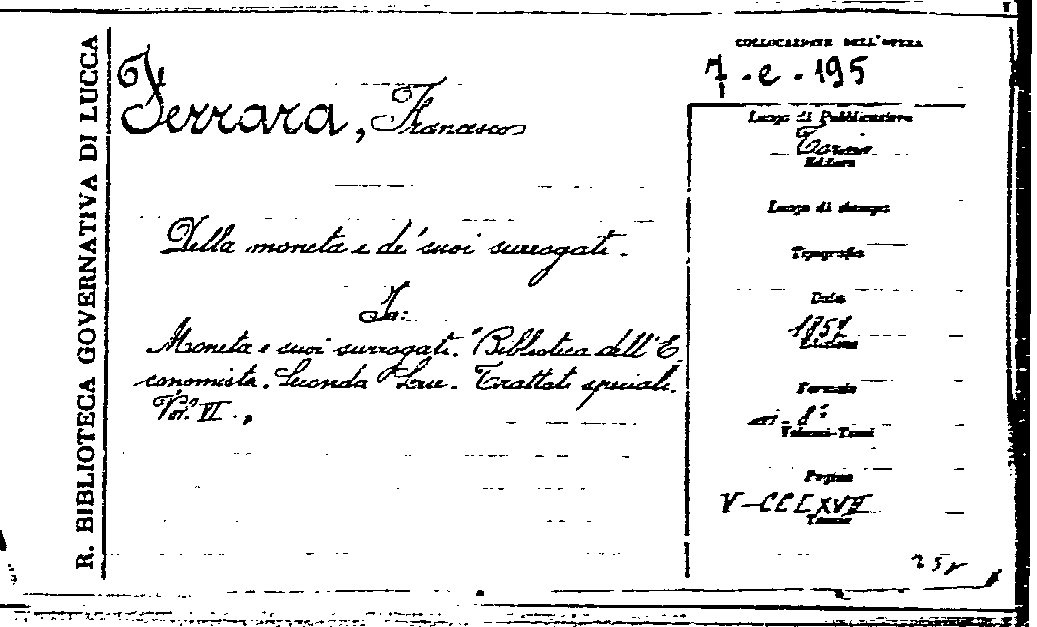 R. BIBLIOTECA GOVERNATIVA DI LUCCA
Ferrara, Francesco
Della moneta e de' suoi surrogati.
In:
Moneta e suoi surrogati. "Biblioteca dell'E
conomista. Seconda Serie. Trattati speciali.
Vol. VI.,
COLLOCAZIONE DELL'OPERA
7 - e - 195
Luogo di Pubblicazione
Torino
Editore
Luogo di stampa
Tipografia
Data
Edizione
Formato
in-8°
Volumi-Tomi
Pagine
V-CCLXVII